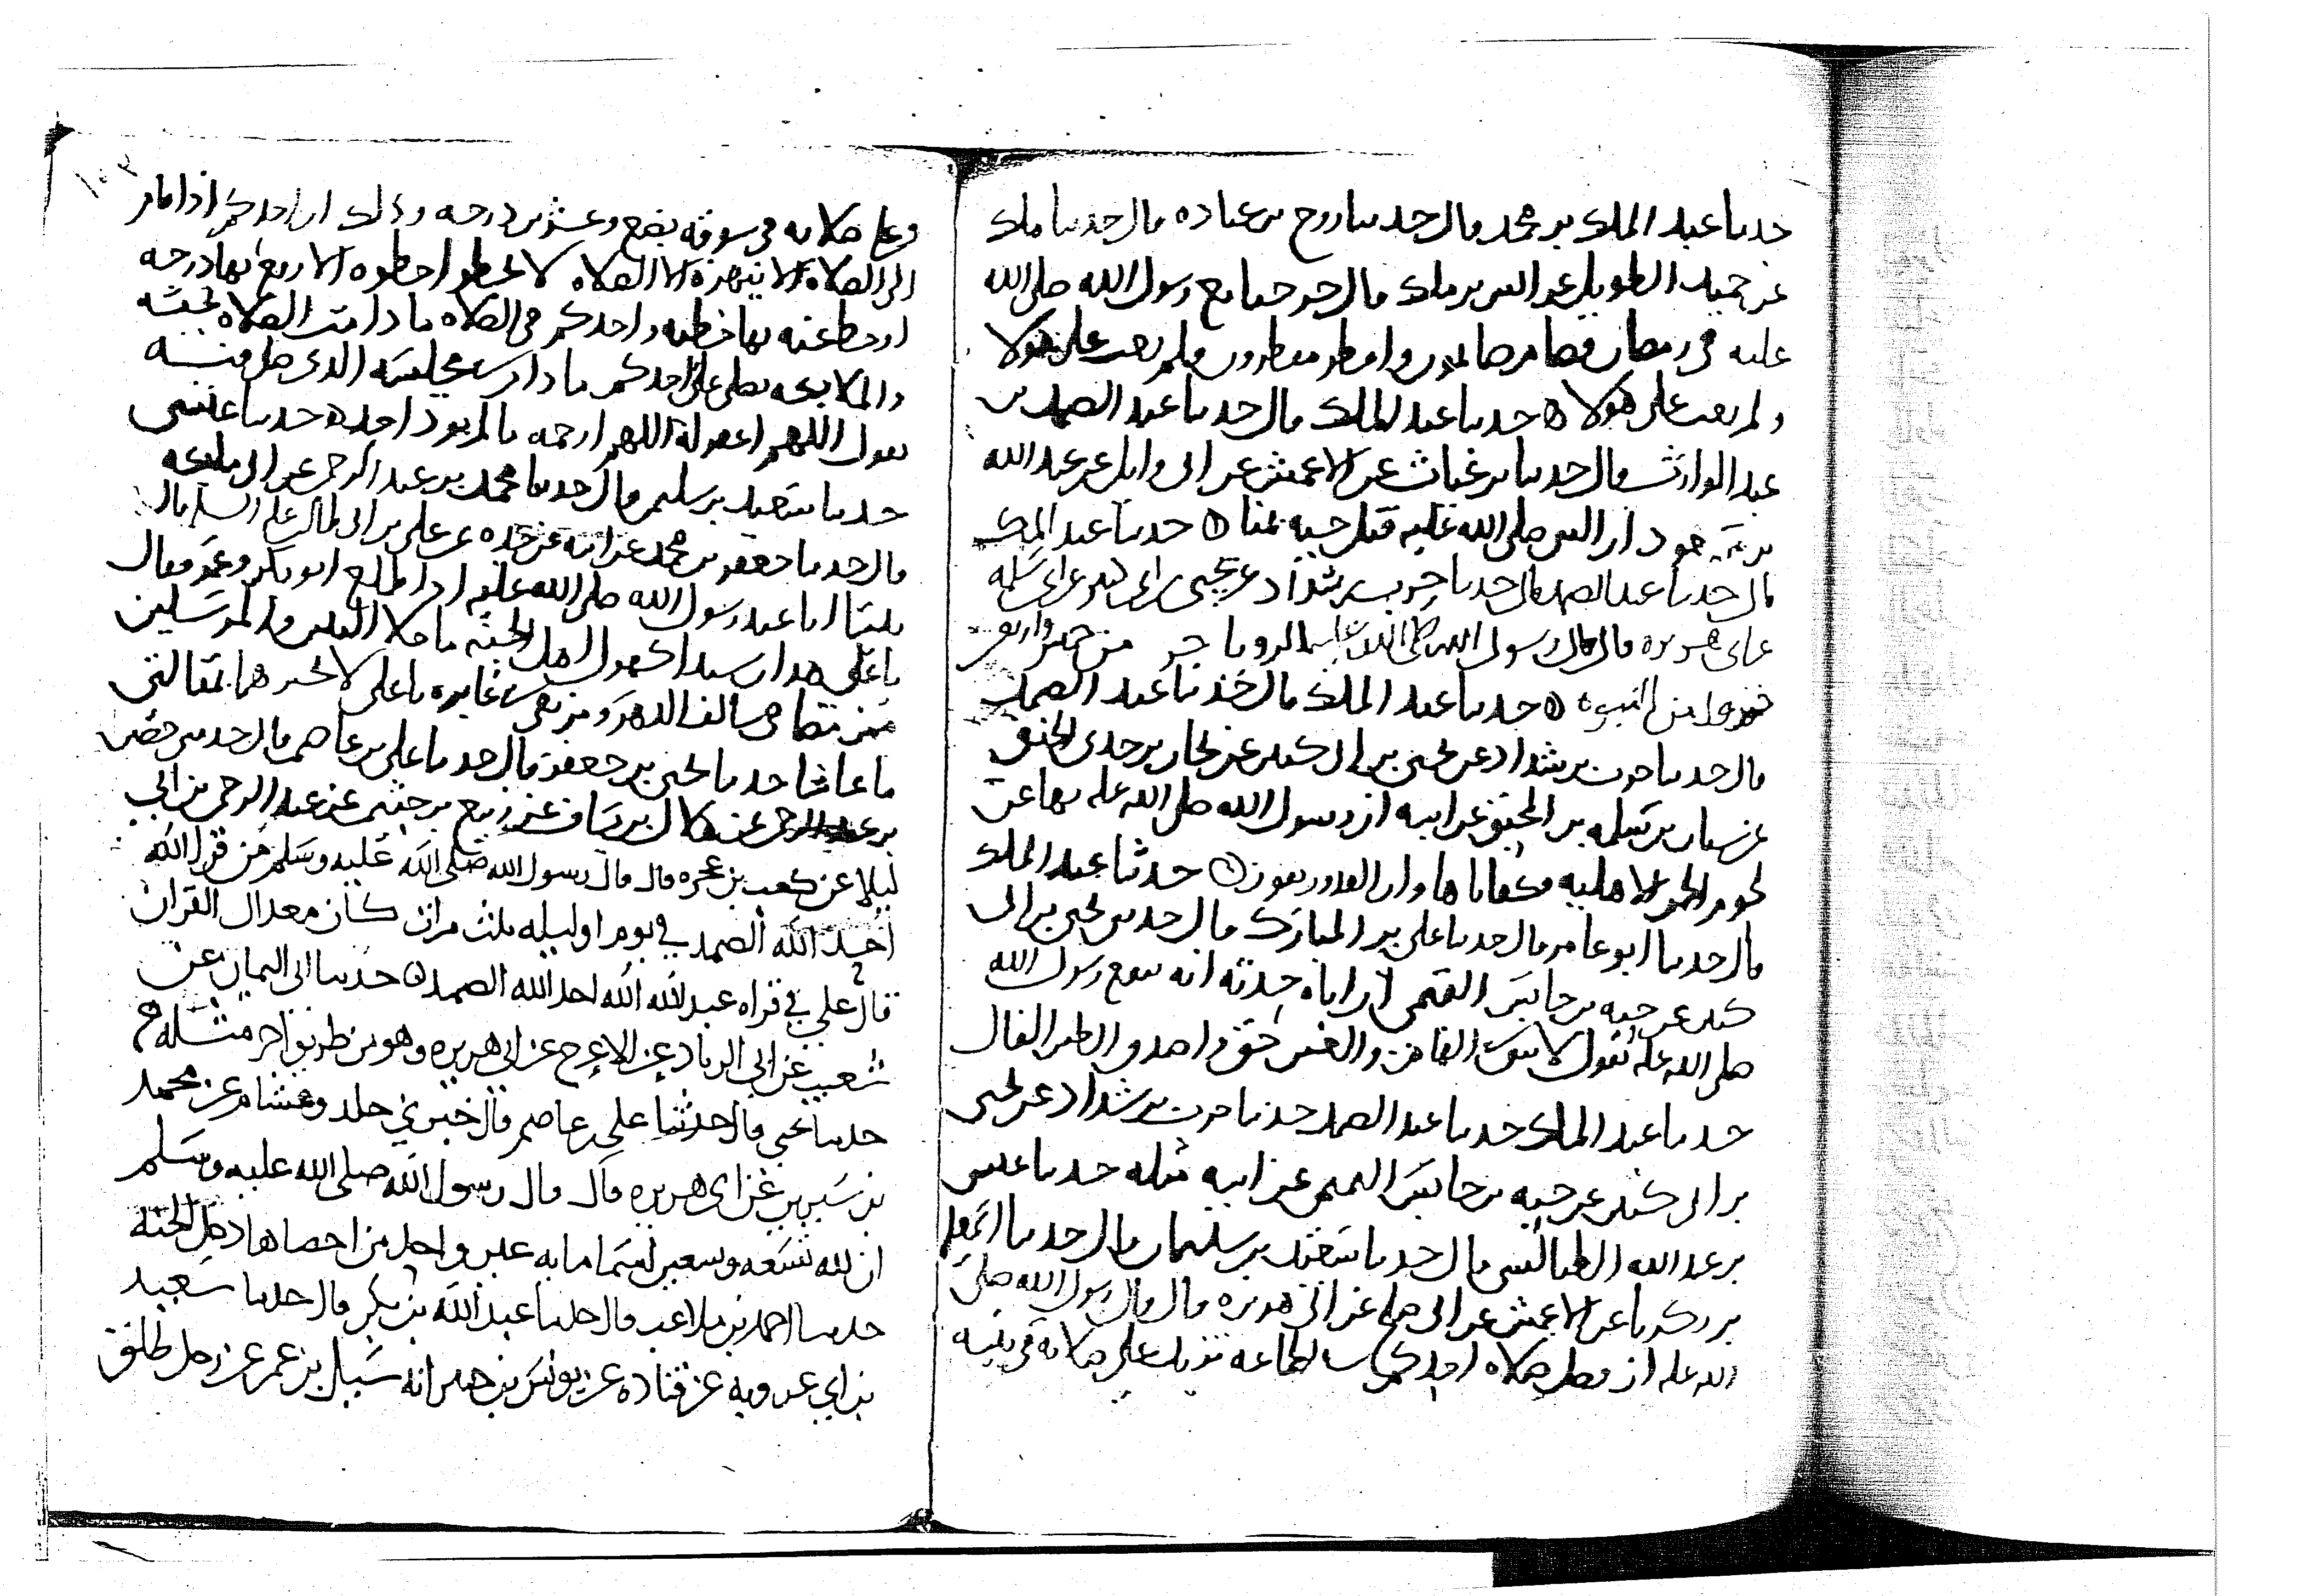 حدثنا عبد الملك بن محمد قال حدثنا روح بن عباده قال حدثنا ملك
عن حميد الطويل عن انس بن ملك قال خرجنا مع رسول الله صلى الله
عليه في رمضان فصام صائمون وافطر مفطرون فلم يعب على هولا
ولم يعب على هولا حدثنا عبد الملك قال حدثنا عبد الصمد بن
عبد الوارث قال حدثنا بن غياث عن الاعمش عن ابي وايل عن عبد الله
النبي صلى الله عليه قتل حية بمنا حدثنا عبد الملك
قال حدثنا عبد الصمد قال حدثنا حرب بن شداد عن يحيى بن ابي كثير عن ابي سلمه
عن ابي هريره قال قال رسول الله صلى الله عليه الرويا جز من خمس واربعين
جزوا من النبوه حدثنا عبد الملك قال حدثنا عبد الصمد
قال حدثنا حرب بن شداد عن يحيى بن ابي كثير عن نحاز بن جدي الحنفي
عن سنان بن سلمه بن المحبق عن ابيه ان رسول الله صلى الله عليه نها عن
لحوم الحمر الاهليه فكفاناها وان القدور تفور حدثنا عبد الملك
قال حدثنا ابو عامر قال حدثنا علي بن المبارك قال حدثني يحيى بن ابي
كثير عن حيه بن حابس التميمي ان اباه حدثه انه سمع رسول الله
صلى الله عليه يقول لا شي في الهام والعين حق واصدق الطير الفال
حدثنا عبد الملك حدثنا عبد الصمد حدثنا حرب بن شداد عن يحيى
بن ابي كثير عن حيه بن حابس التميمي عن ابيه مثله حدثنا عيسى
بن عبد الله الطيالسي قال حدثنا سعيد بن سليمان قال حدثنا اسمعيل
بن زكريا عن الاعمش عن ابي صالح عن ابي هريره قال قال رسول الله صلى
الله عليه ان فضل صلاه احدكم في الجماعه تزيد على صلاته في بيته
وعلى صلاته في سوقه بضع وعشرين درجه وذلك ان احدكم اذا قام
الى الصلاه لا ينهزه الا الصلاه لا يخطوا خطوه الا رفع بها درجه
او حط عنه بها خطيه واحدكم في الصلاه ما دامت الصلاه تحبسه
والملايكه تصلي على احدكم ما دام في مجلسه الذي صلى فيه
تقول اللهم اغفر له اللهم ارحمه ما لم يوذ احدا حدثنا عيسى
حدثنا سعيد بن سليمن قال حدثنا محمد بن عبد الرحمن عن ابي مليكه
قال حدثنا جعفر بن محمد عن ابيه عن جده عن علي بن ابي طالب عليه السلم قال
بينا انا عند رسول الله صلى الله عليه اذ اطلع ابو بكر وعمر فقال
يا علي هذان سيدا كهول اهل الجنه ما خلا النبيين والمرسلين
ممن مضا في سالف الدهر ومن بقي في غابره يا علي لا تخبرهما بمقالتي
ما عاشا حدثنا يحيى بن جعفر قال حدثنا علي بن عاصم قال حدثني حصين
بن عبد الرحمن عن هلال بن يساف عن ربيع بن خثيم عن عبد الرحمن بن ابي
ليلا عن كعب بن عجره قال قال رسول الله صلى الله عليه وسلم من قرا الله
احد الله الصمد في يوم او ليله ثلث مرات كان معدال القران
قال علي في قراه عبد الله الله احد الله الصمد حدثنا ابي اليمان عن
شعيب عن ابي الزناد عن الاعرج عن ابي هريره وهو من طريق اخر مثله
حدثنا يحيى قال حدثنا علي بن عاصم قال خبرني خلد وهشام عن محمد
بن سيرين عن ابي هريره قال قال رسول الله صلى الله عليه وسلم
ان لله تسعه وتسعين اسما مايه غير واحد من احصاها دخل الجنه
حدثنا احمد بن ملاعب قال حدثنا عبد الله بن بكر قال حدثنا سعيد
بن ابي عروبه عن قتاده عن يونس بن جبير انه سيل بن عمر عن رجل طلق